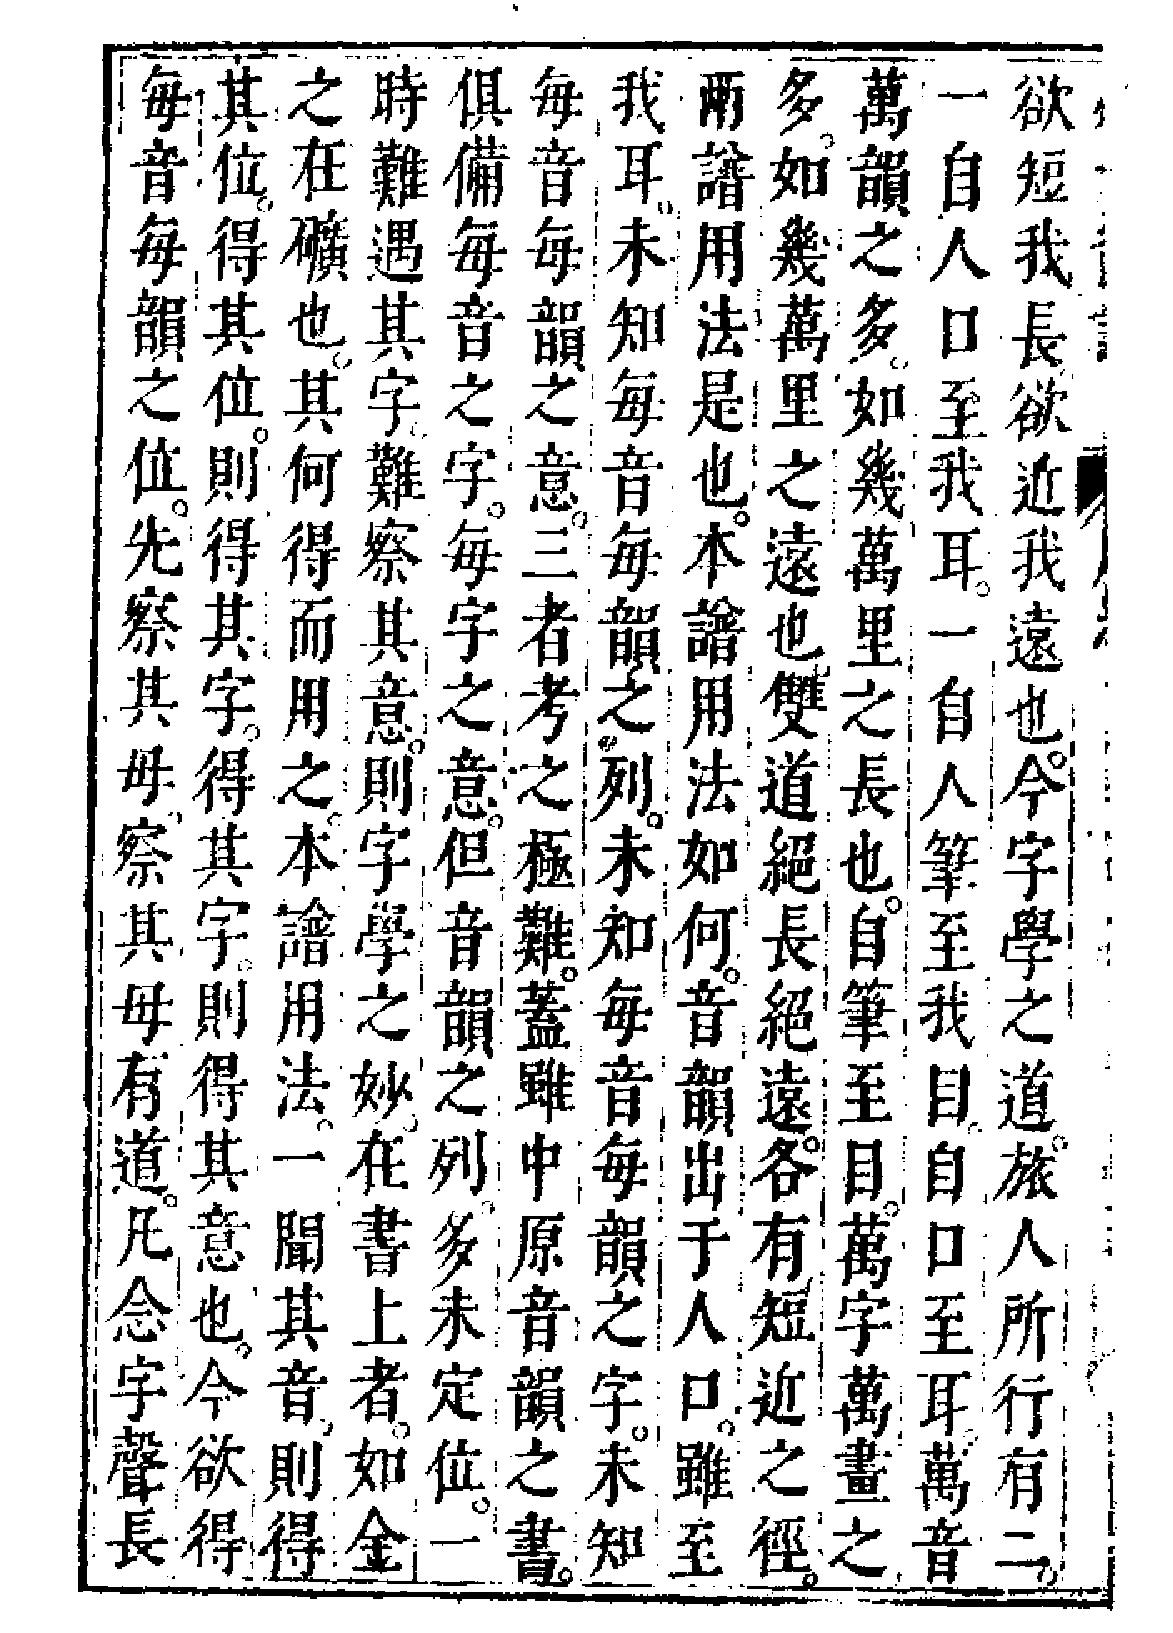 欲短我長欲近我遠也。今字學之道。旅人所行有二。
一自人口至我耳。一自人筆至我目。自口至耳。萬音
萬韻之多。如幾萬里之長也。自筆至目。萬字萬畫之
多。如幾萬里之遠也。雙道絕長絕遠。各有短近之徑。
兩譜用法是也。本譜用法如何。音韻出于人口。雖至
我耳。未知每音每韻之列。未知每音每韻之字。未知
每音每韻之意。三者考之極難。蓋雖中原音韻之書。
俱備每音之字。每字之意。但音韻之列。多未定位。一
時難遇其字。難察其意。則字學之妙。在書上者。如金
之在礦也。其何得而用之。本譜用法。一聞其音。則得
其位。得其位。則得其字。得其字。則得其意也。今欲得
每音每韻之位。先察其母。察其母有道。凡念字聲長